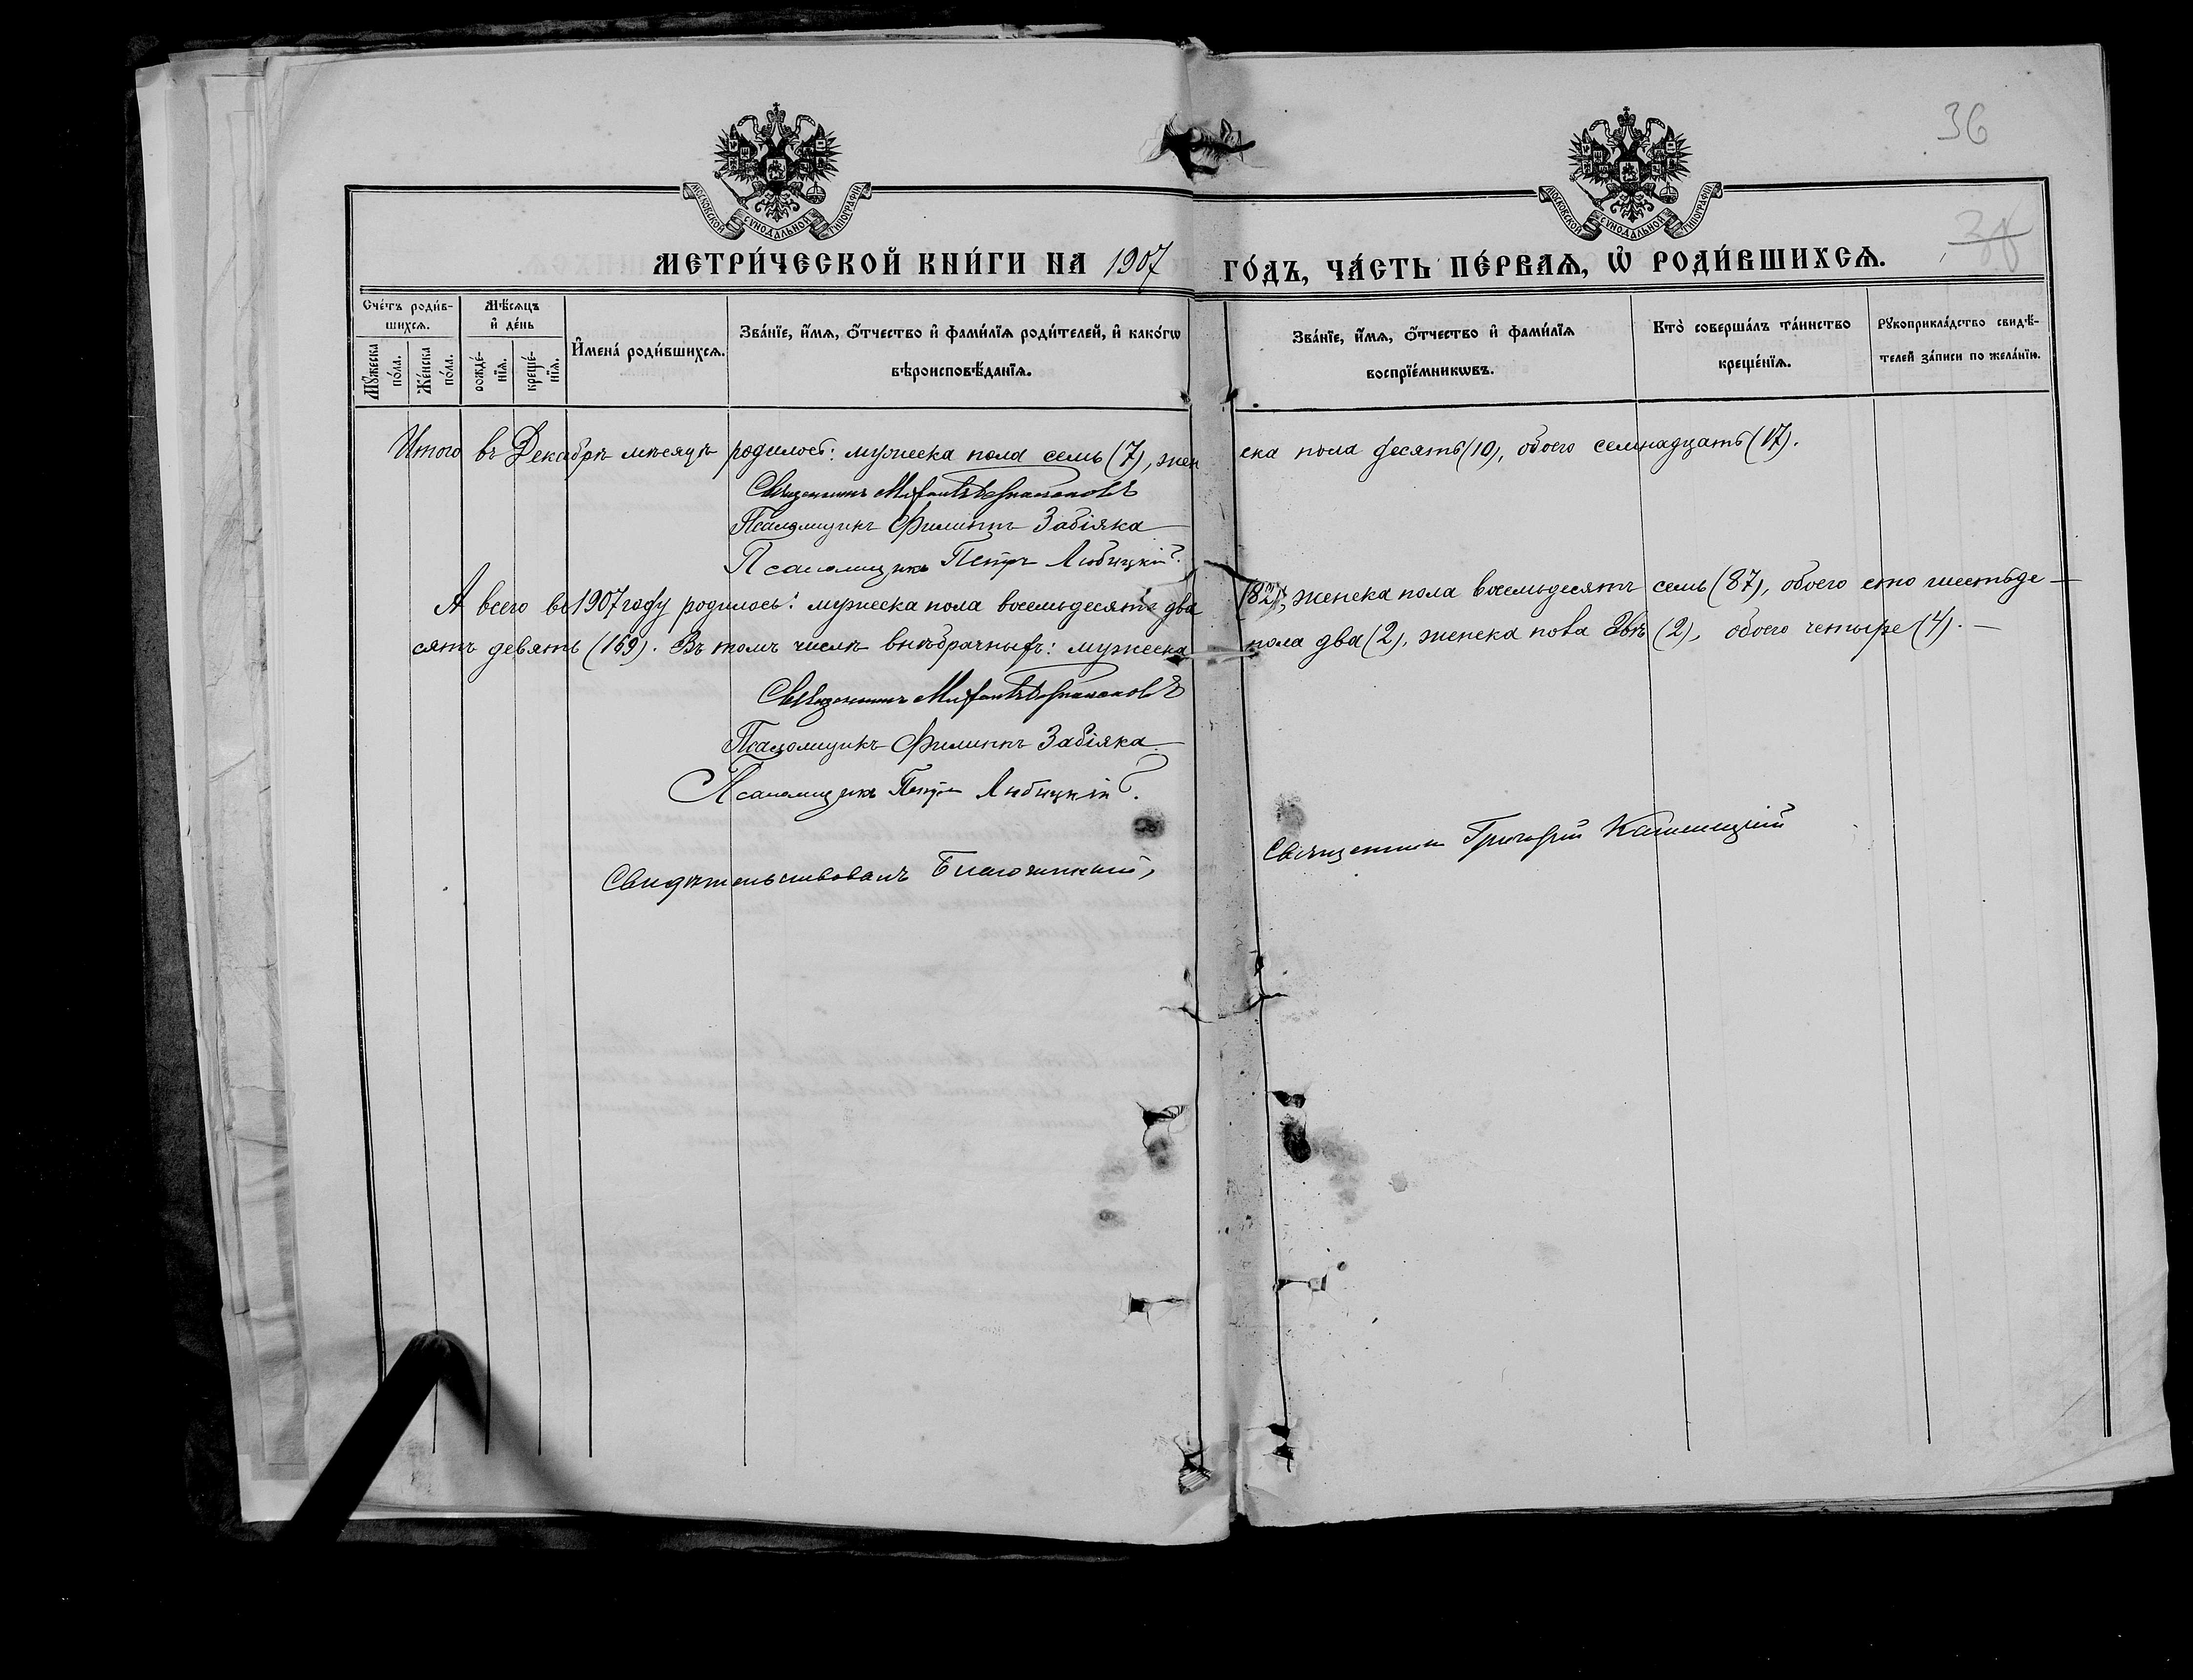 36
38
МОСКОВСКОЙ СѴНОДАЛЬНОЙ ТИПОГРАФІИ
МОСКОВСКОЙ СѴНОДАЛЬНОЙ ТИПОГРАФІИ
МЕТРИ́ЧЕСКОЙ КНИ́ГИ НА 1907 ГО́ДЪ, ЧА́СТЬ ПЕ́РВАѦ, Ѡ҆ РОДИ́ВШИХСѦ.
Сче́тъ роди́в-
шихсѧ.
Мꙋ́жеска по́ла.
Же́нска по́ла.
Мѣ́сѧцъ
и҆ де́нь
рожде́-
нїѧ.
креще́-
нїѧ.
И҆мена̀ роди́вшихсѧ.
Зва́нїе, и҆́мѧ, ѻ҆́тчество и҆ фами́лїѧ роди́телей, и҆ како́гѡ
вѣроисповѣ́данїѧ.
Зва́нїе, и҆́мѧ, ѻ҆́тчество и҆ фами́лїѧ
воспрїе́мникѡвъ.
Кто̀ соверша́лъ та́инство
креще́нїѧ.
Рꙋкоприкла́дство свидѣ́-
телей за́писи по жела́нїю.
Итого въ Декабрѣ мѣсяцѣ родилось: мужеска пола семь (7), жен ска пола десять (10), обоего семнадцать (17).
Священникъ
Псаломщикъ Филиппъ Забіяка
Псаломщикъ Петръ Любицкій.
А всего въ 1907 году родилось: мужеска пола восемьдесятъ два (82), женска пола восемьдесятъ семь (87), обоего сто шестьде-
сятъ девять (169). Въ томъ числѣ внѣбрачныхъ: мужеска пола два (2), женска пола двѣ (2), обоего четыре (4). —
Священникъ
Псаломщикъ Филиппъ Забіяка.
Псаломщикъ Петръ Любицкій.
Свидѣтельствовалъ Благочинный, Священникъ Григорій